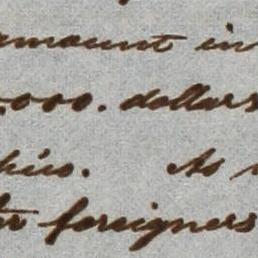 amount in
000. dollars
As
foreigners